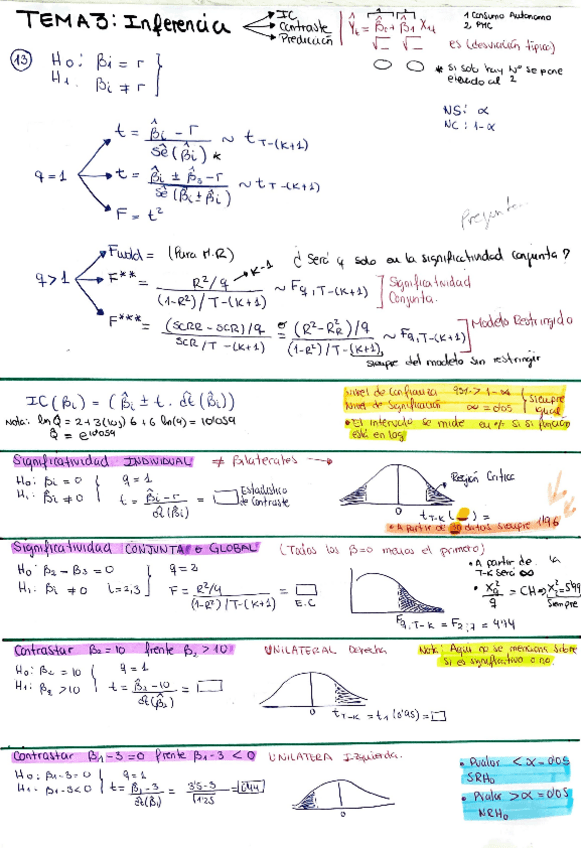 TEMA 3: Inferencia
IC
Contraste
Predicción
Ŷt = β̂2 + β̂1 X1t
1 Consumo Autonomo
2 PMC
es (desviación típica)
* si solo hay Nº se pone elevado al 2
NS: α
NC: 1-α
13 H0: βi = r
H1: βi ≠ r
q = 1
t = β̂i - r / sê(β̂i) * ~ t T-(K+1)
t = β̂i ± β̂s - r / sê(β̂i ± β̂i) ~ t T-(K+1)
F = t²
q > 1
Fwald = (Para M.R)
¿ Será q solo en la significatividad conjunta?
F** = R²/q / (1-R²)/T-(K+1) ~ Fq, T-(K+1)
K-1
Significatividad Conjunta.
F*** = (SCRR - SCR)/q / SCR/T-(K+1) = (R²-R²R)/q / (1-R²)/T-(K+1) ~ Fq, T-(K+1)
Modelo Restringido
siempre del modelo sin restringir
IC(βi) = (β̂i ± t . dt(β̂i))
Nivel de Confianza 95% 1-α
Nivel de Significación α = 0'05
siempre igual
• El intervalo se mide en % si si función está en log
Q̂ = e^10'059
Significatividad INDIVIDUAL ≠ Bilaterales
H0: βi = 0
H1: βi ≠ 0
q = 1
t = β̂i - r / dt(βi) =
Estadistico de Contraste
Región Critica
0
t T-K ( ) =
• A partir de 30 datos siempre 1'96
Significatividad CONJUNTA o GLOBAL (Todos los β=0 menos el primero)
H0: β2 - β3 = 0
H1: βi ≠ 0 i=2,3
q = 2
F = R²/q / (1-R²)/T-(K+1) =
E.C
Fq, T-K = F2;7 = 4'74
• A partir de la T-K será ∞
Siempre
Contrastar β2 = 10 frente β2 > 10 UNILATERAL Derecha
Nota: Aqui no se menciona sobre si es significativo o no.
H0: β2 = 10
H1: β2 > 10
q = 1
t = β̂2 - 10 / dt(β̂2) =
0
Contrastar β1-3=0 frente β1-3 < 0 UNILATERA Izquierda.
H0: β1-3=0
H1: β1-3<0
q = 1
t = β̂1 - 3 / dt(β1) = 3'5-3 / √1'25 =
0
• Pvalor < α = 0'05
SRH0
• Pvalor > α = 0'05
NRH0